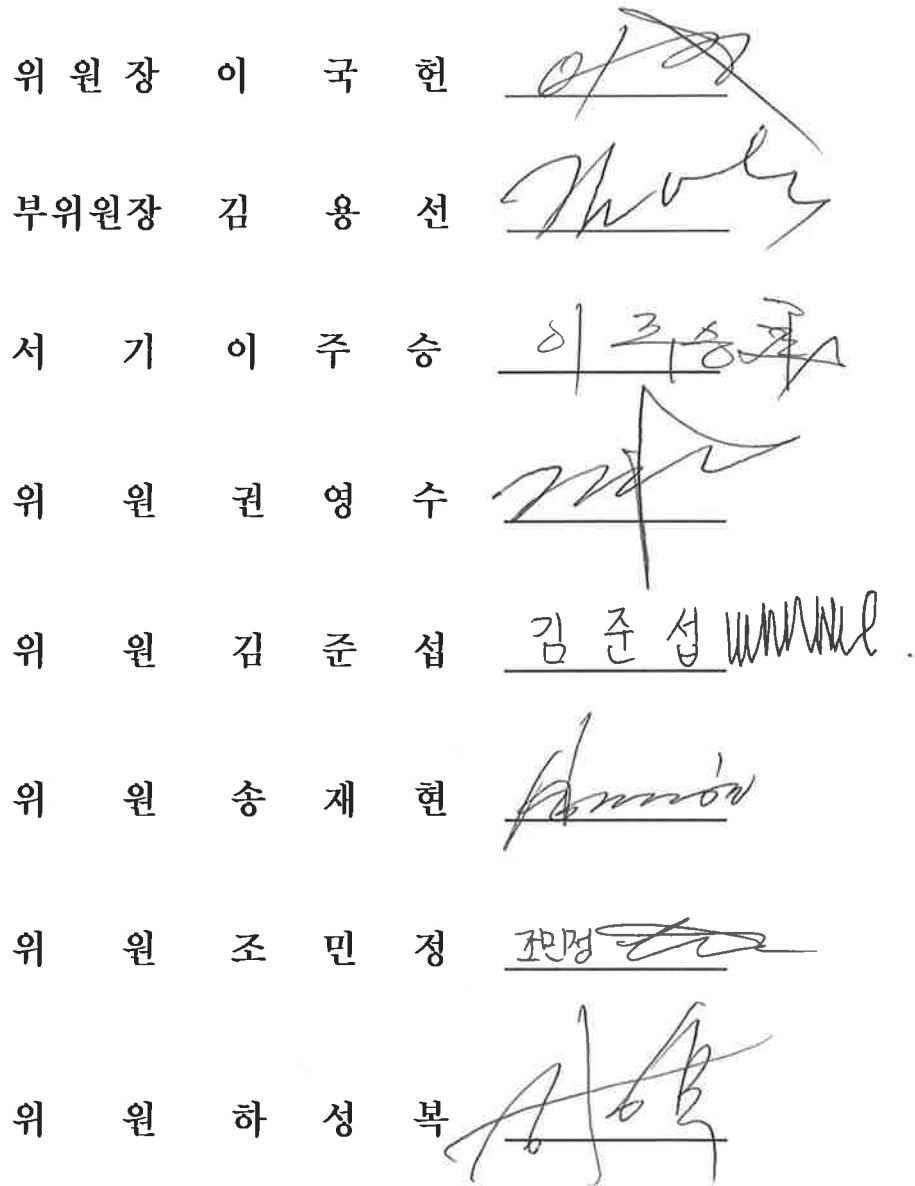 위 원 장 이 국 헌
부위원장 김 용 선
서 기 이 주 승 이 주 승
위 원 권 영 수
위 원 김 준 섭 김 준 섭
위 원 송 재 현
위 원 조 민 정 조민정
위 원 하 성 복